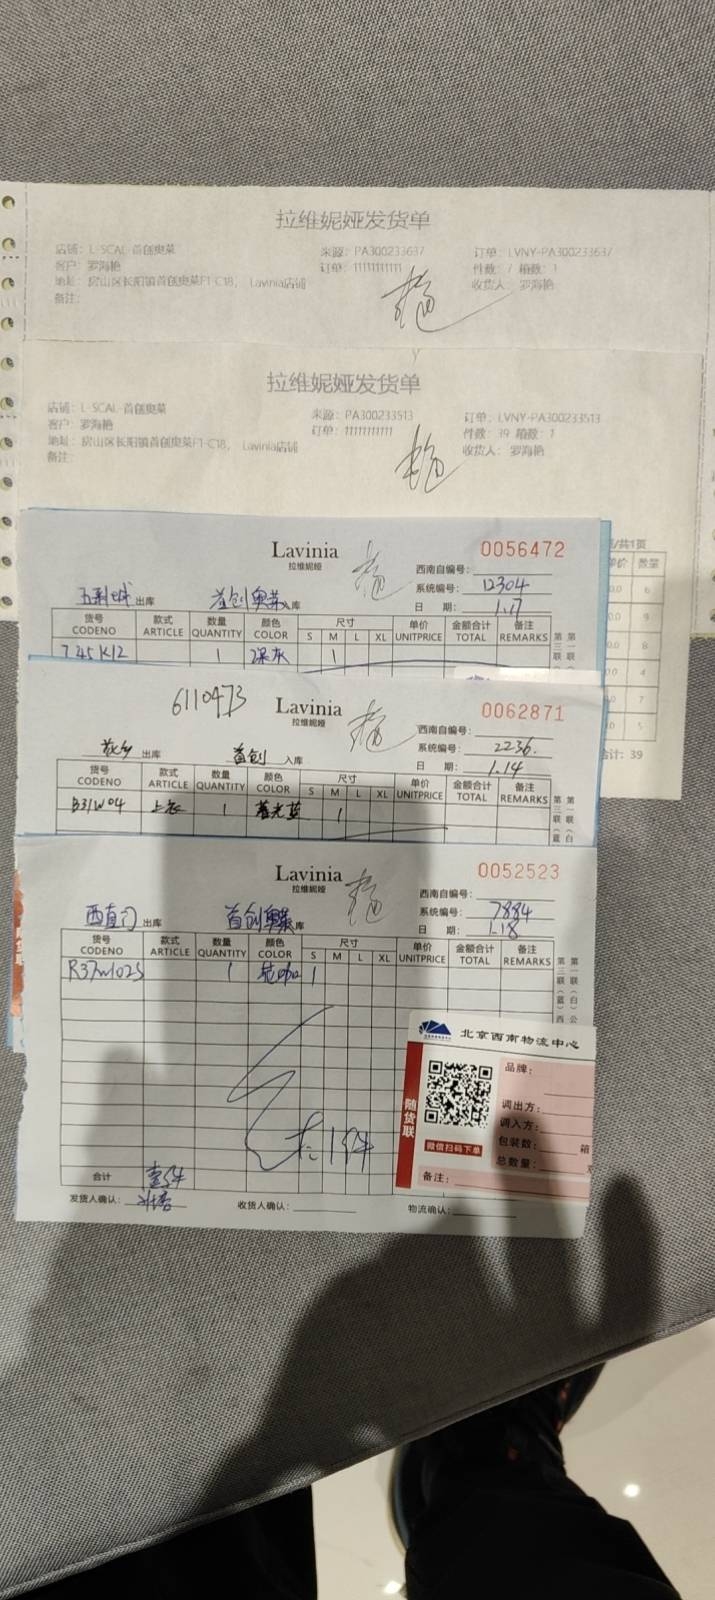 拉维妮娅发货单
店铺: L-SCAL-首创奥莱 来源: PA300233637 订单: LVNY-PA300233637
客户: 罗海艳 订单: 11111111111 件数: 7 箱数: 1
地址: 房山区长阳镇首创奥莱F1-C18, Lavinia店铺 收货人: 罗海艳
备注:
拉维妮娅发货单
店铺: L-SCAL-首创奥莱 来源: PA300233513 订单: LVNY-PA300233513
客户: 罗海艳 订单: 11111111111 件数: 39 箱数: 1
地址: 房山区长阳镇首创奥莱F1-C18, Lavinia店铺 收货人: 罗海艳
备注:
/共1页
单价 数量
0.0 6
0.0 9
0.0 8
0.0 4
0.0 7
0.0 5
合计: 39
Lavinia 0056472
拉维妮娅
西南自编号:
系统编号: 12304
五彩城 出库 首创奥莱 入库 日 期: 1.17
货号 款式 数量 颜色 尺寸 单价 金额合计 备注
CODENO ARTICLE QUANTITY COLOR S M L XL UNITPRICE TOTAL REMARKS
745K12 1 深灰 1
第三联
第一联
6110473 Lavinia 0062871
拉维妮娅
西南自编号:
系统编号: 2236.
出库 首创 入库 日 期: 1.14
货号 款式 数量 颜色 尺寸 单价 金额合计 备注
CODENO ARTICLE QUANTITY COLOR S M L XL UNITPRICE TOTAL REMARKS
B31W04 上衣 1 蓝 1
第三联(蓝
第一联(白
Lavinia 0052523
拉维妮娅
西南自编号:
系统编号: 7884
西直门 出库 首创奥莱 库 日 期: 1.18
货号 款式 数量 颜色 尺寸 单价 金额合计 备注
CODENO ARTICLE QUANTITY COLOR S M L XL UNITPRICE TOTAL REMARKS
R37W1025 1 1
第三联(蓝)西
第一联(白)公
共1件
合计 壹件
发货人确认: 收货人确认: 物流确认:
北京西南物流中心
随货联
品牌:
调出方:
调入方:
包装数: 箱
总数量:
微信扫码下单
备注: